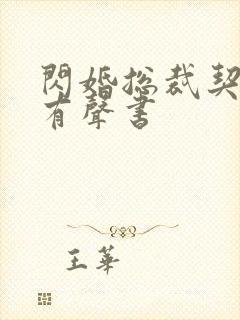 閃婚總裁契
有聲書
王華